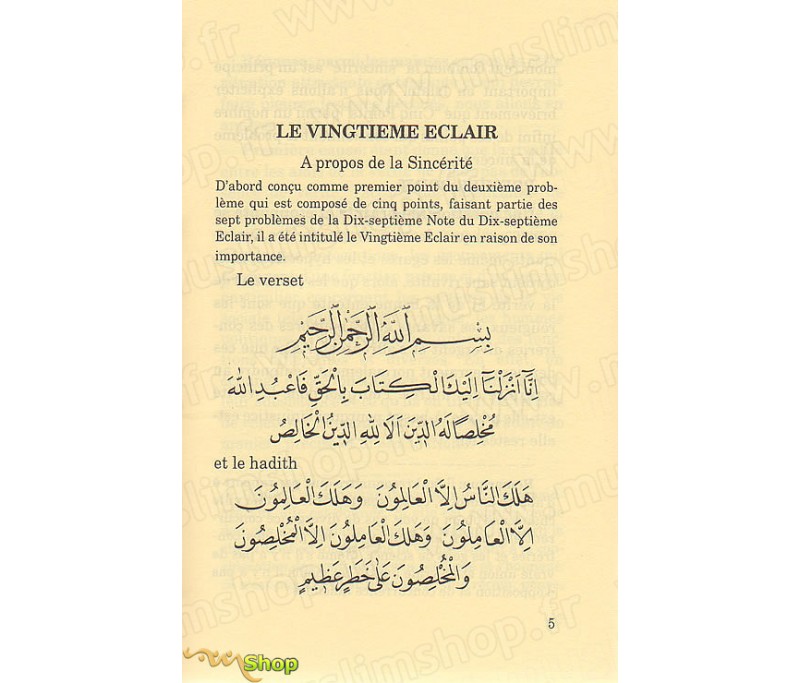 LE VINGTIEME ECLAIR
A propos de la Sincérité
D'abord conçu comme premier point du deuxième prob-
lème qui est composé de cinq points, faisant partie des
sept problèmes de la Dix-septième Note du Dix-septième
Eclair, il a été intitulé le Vingtième Eclair en raison de son
importance.
Le verset
بِسْمِ اللّٰهِ الرَّحْمٰنِ الرَّحِيمِ
اِنَّٓا اَنْزَلْنَٓا اِلَيْكَ الْكِتَابَ بِالْحَقِّ فَاعْبُدِ اللّٰهَ
مُخْلِصًا لَهُ الدِّينَ اَلَا لِلّٰهِ الدِّينُ الْخَالِصُ
et le hadith
هَلَكَ النَّاسُ اِلَّا الْعَالِمُونَ وَهَلَكَ الْعَالِمُونَ
اِلَّا الْعَامِلُونَ وَهَلَكَ الْعَامِلُونَ اِلَّا الْمُخْلِصُونَ
وَالْمُخْلِصُونَ عَلٰى خَطَرٍ عَظِيمٍ
5
Shop